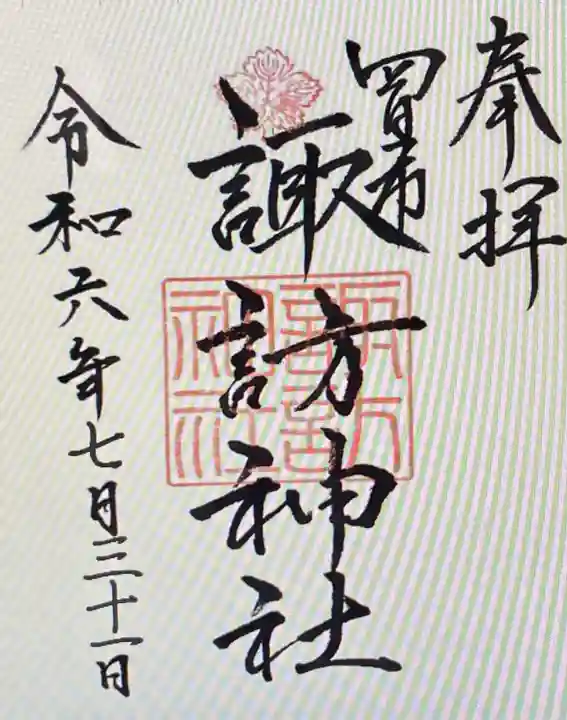 奉拝
四日市
諏訪神社
諏訪
神社
令和六年七月三十一日